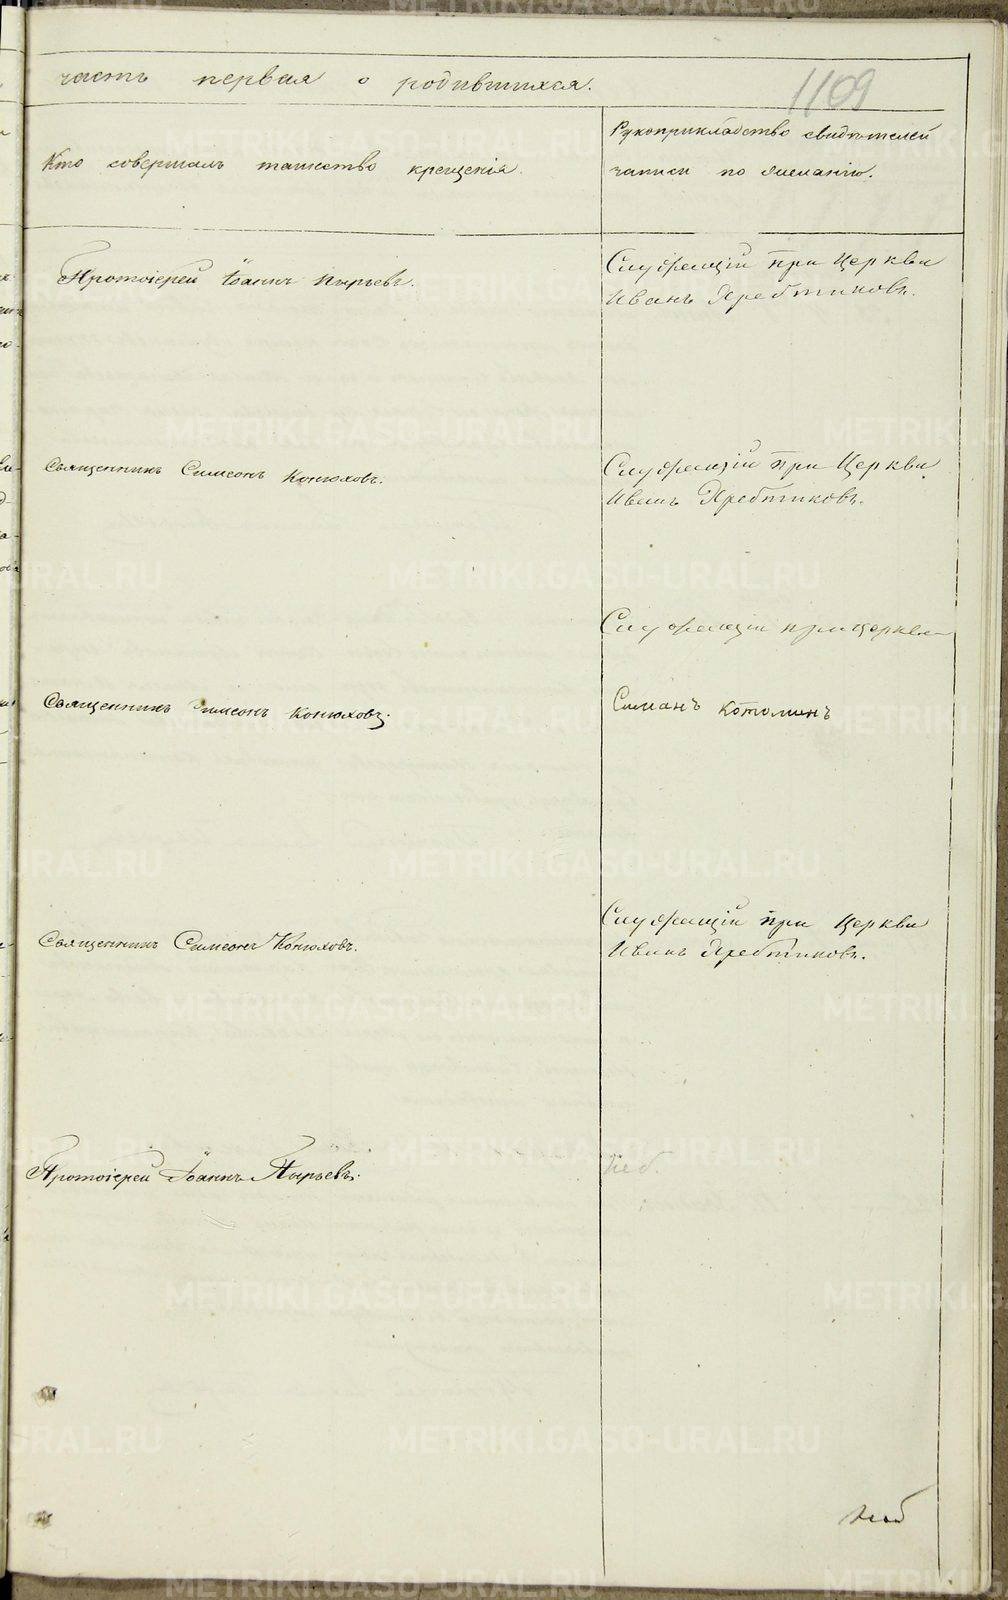 часть первая о родившихся.
1109
Кто совершалъ таинство крещенія.
Рукоприкладство свидѣтелей
записи по желанію.
Протоіерей Іоаннъ Пырьевъ.
Служащій при Церкви
Иванъ Хребтиковъ.
Священникъ Симеонъ Конюховъ.
Служащій при Церкви
Иванъ Хребтиковъ.
Служащій при церкви
Священникъ Симеонъ Конюховъ.
Симанъ Котоминъ
Священникъ Симеонъ Конюховъ.
Служащій при Церкви
Иванъ Хребтиковъ.
Протоіерей Іоаннъ Пырьевъ.
METRIKI.GASO-URAL.RU